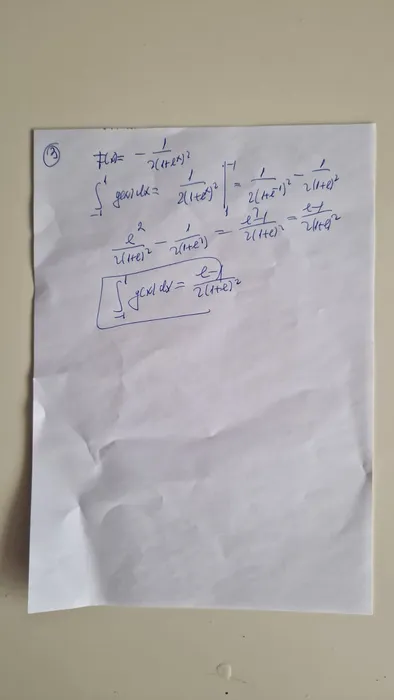 ③ F(x) = -1/2(1+eˣ)²
∫₋₁¹ g(x) dx = 1/2(1+eˣ)² |₁⁻¹ = 1/2(1+e⁻¹)² - 1/2(1+e)²
e²/2(1+e)² - 1/2(1+e)² = e²-1/2(1+e)² = e-1/2(1+e)²
∫₋₁¹ g(x) dx = e-1/2(1+e)²